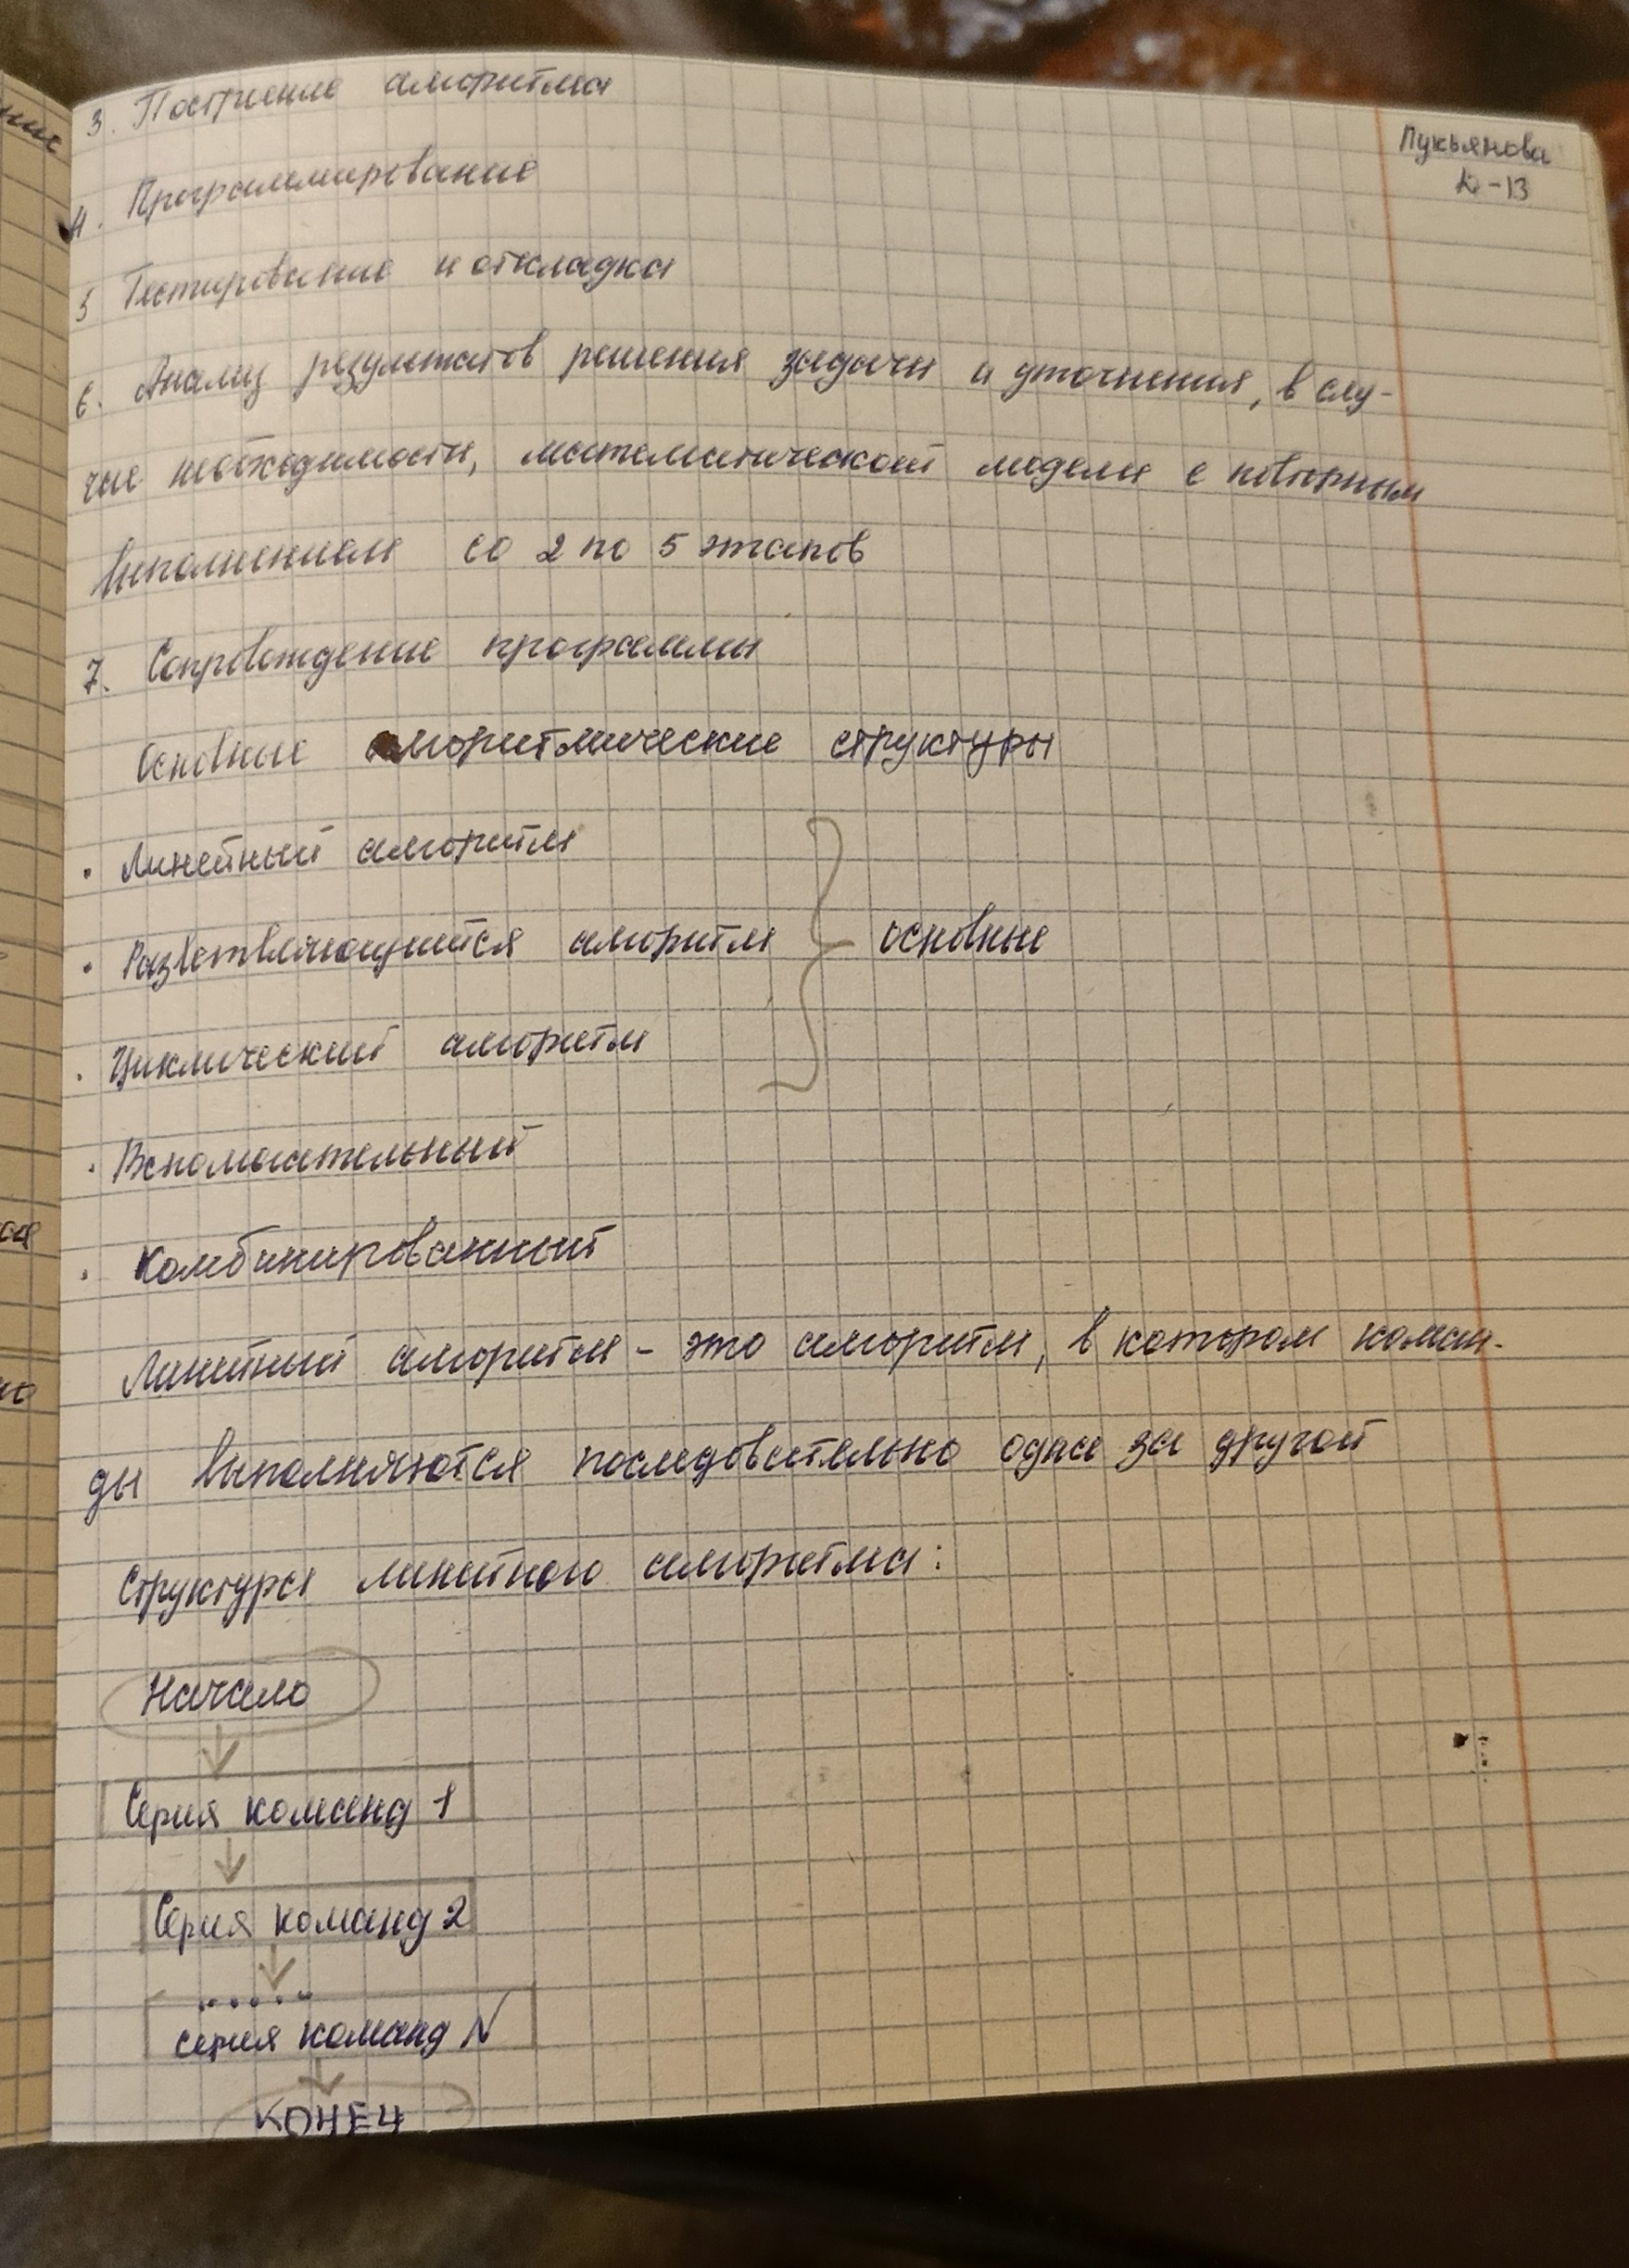 Лукьянова
Ю-13
3. Построение алгоритма
4. Программирование
5 Тестирование и откладка
6. Анализ результатов решения задачи и уточнения, в слу-
чае необходимости, математической модели с повторным
выполнением со 2 по 5 этапов
7. Сопровождение программы
Основные алгоритмические структуры
· Линейный алгоритм
· Разветвляющийся алгоритм основные
· Циклический алгоритм
· Вспомогательный
· Комбинированный
Линейный алгоритм - это алгоритм, в котором коман-
ды выполняются последовательно одна за другой
Структура линейного алгоритма:
Начало
Серия команд 1
Серия команд 2
.....
серия команд N
КОНЕЦ